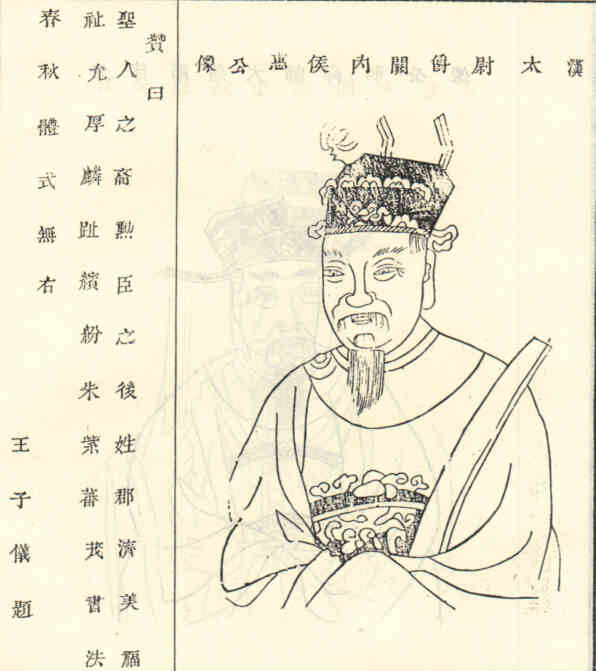 漢太尉關內侯公像
贊曰
聖人之裔勲臣之後姓郡濟美福
祉允厚麟趾繽紛朱紫蕃茂書法
春秋體式無右
王子儀題